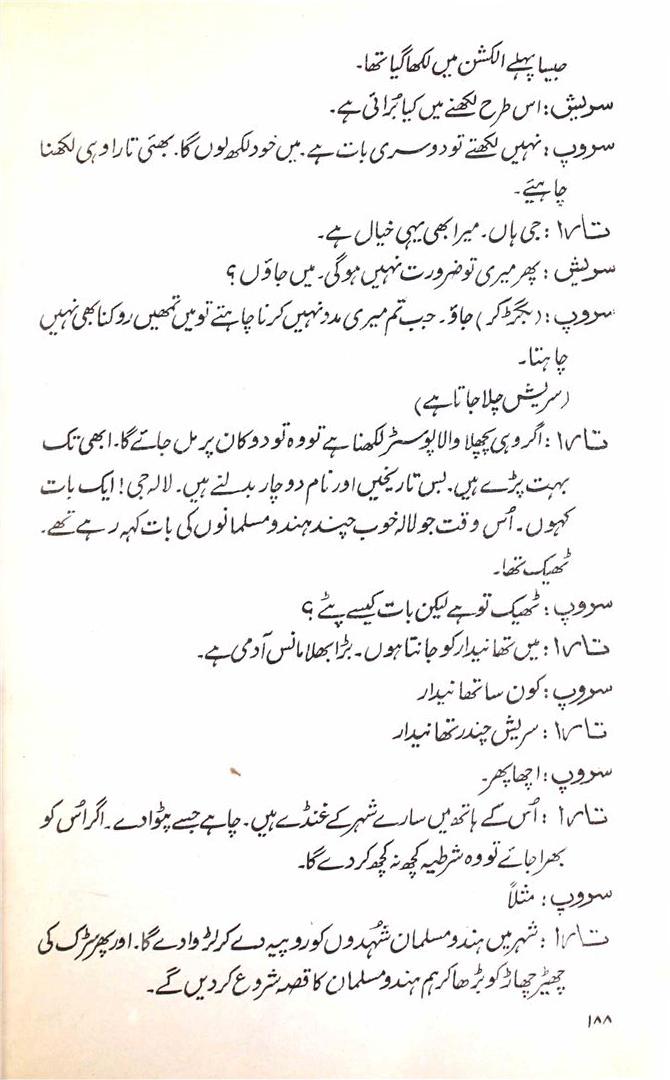 جیسا پہلے الکشن میں لکھا گیا تھا۔
سریش : اس طرح لکھنے میں کیا بُرائی ہے۔
سروپ : نہیں لکھتے تو دوسری بات ہے۔ میں خود لکھ لوں گا۔ بھئی تارا وہی لکھنا
چاہیئے۔
تارا : جی ہاں۔ میرا بھی یہی خیال ہے۔
سریش : پھر میری تو ضرورت نہیں ہوگی۔ میں جاؤں ؟
سروپ : (بگڑ کر) جاؤ۔ جب تم میری مدد نہیں کرنا چاہتے تو میں تمھیں روکنا بھی نہیں
چاہتا۔
(سریش چلا جاتا ہے)
تارا : اگر وہی پچھلا والا پوسٹر لکھنا ہے تو وہ تو دوکان پر مل جائے گا۔ ابھی تک
بہت پڑے ہیں۔ بس تاریخیں اور نام دو چار بدلنے ہیں۔ لالہ جی! ایک بات
کہوں۔ اُس وقت جو لالہ خوب چند ہندو مسلمانوں کی بات کہہ رہے تھے۔
ٹھیک تھا۔
سروپ : ٹھیک تو ہے لیکن بات کیسے پٹے ؟
تارا : میں تھانیدار کو جانتا ہوں۔ بڑا بھلا مانس آدمی ہے۔
سروپ : کون سا تھانیدار
تارا : سریش چندر تھانیدار
سروپ : اچھا پھر۔
تارا : اُس کے ہاتھ میں سارے شہر کے غنڈے ہیں۔ چاہے جسے پٹوا دے۔ اگر اُس کو
بھرا جائے تو وہ شرطیہ کچھ نہ کچھ کر دے گا۔
سروپ : مثلاً
تارا : شہر میں ہندو مسلمان شُہدوں کو روپیہ دے کر لڑوا دے گا۔ اور پھر سڑک کی
چھیڑ چھاڑ کو بڑھا کر ہم ہندو مسلمان کا قصہ شروع کر دیں گے۔
۱۸۸